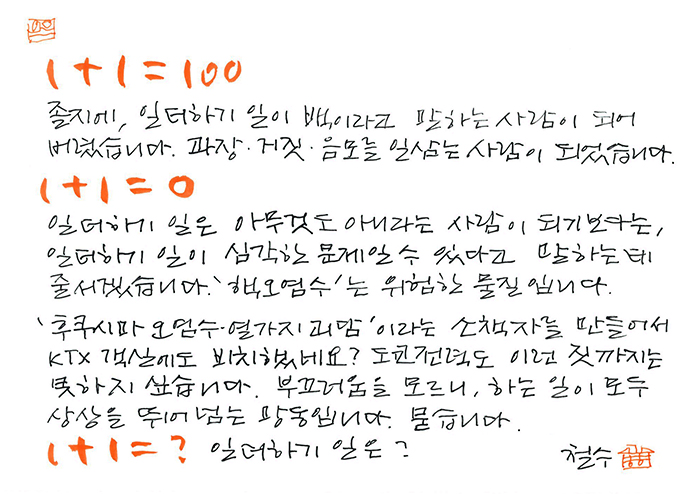 1+1=100
졸지에, 일더하기 일이 백이라고 말하는 사람이 되어
버렸습니다. 과장·거짓·음모를 일삼는 사람이 되었습니다.
1+1=0
일더하기 일은 아무것도 아니라는 사람이 되기보다는,
일더하기 일이 심각한 문제일 수 있다고 말하는 데
줄서겠습니다. '핵오염수'는 위험한 물질입니다.
'후쿠시마 오염수·열가지 괴담'이라는 소책자를 만들어서
KTX 객실에도 비치했네요? 도쿄전력도 이런 짓까지는
못하지 싶습니다. 부끄러움을 모르니, 하는 일이 모두
상상을 뛰어넘는 망동입니다. 묻습니다.
1+1=? 일더하기 일은? 철수